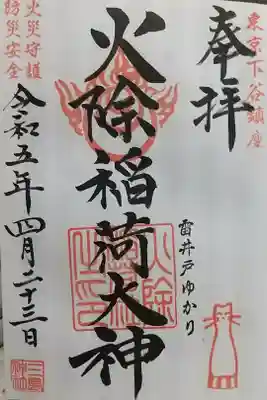 東京下谷鎮座
奉拝
雷井戸ゆかり
火除稲荷大神
火災守護
防災安全
令和五年四月二十三日